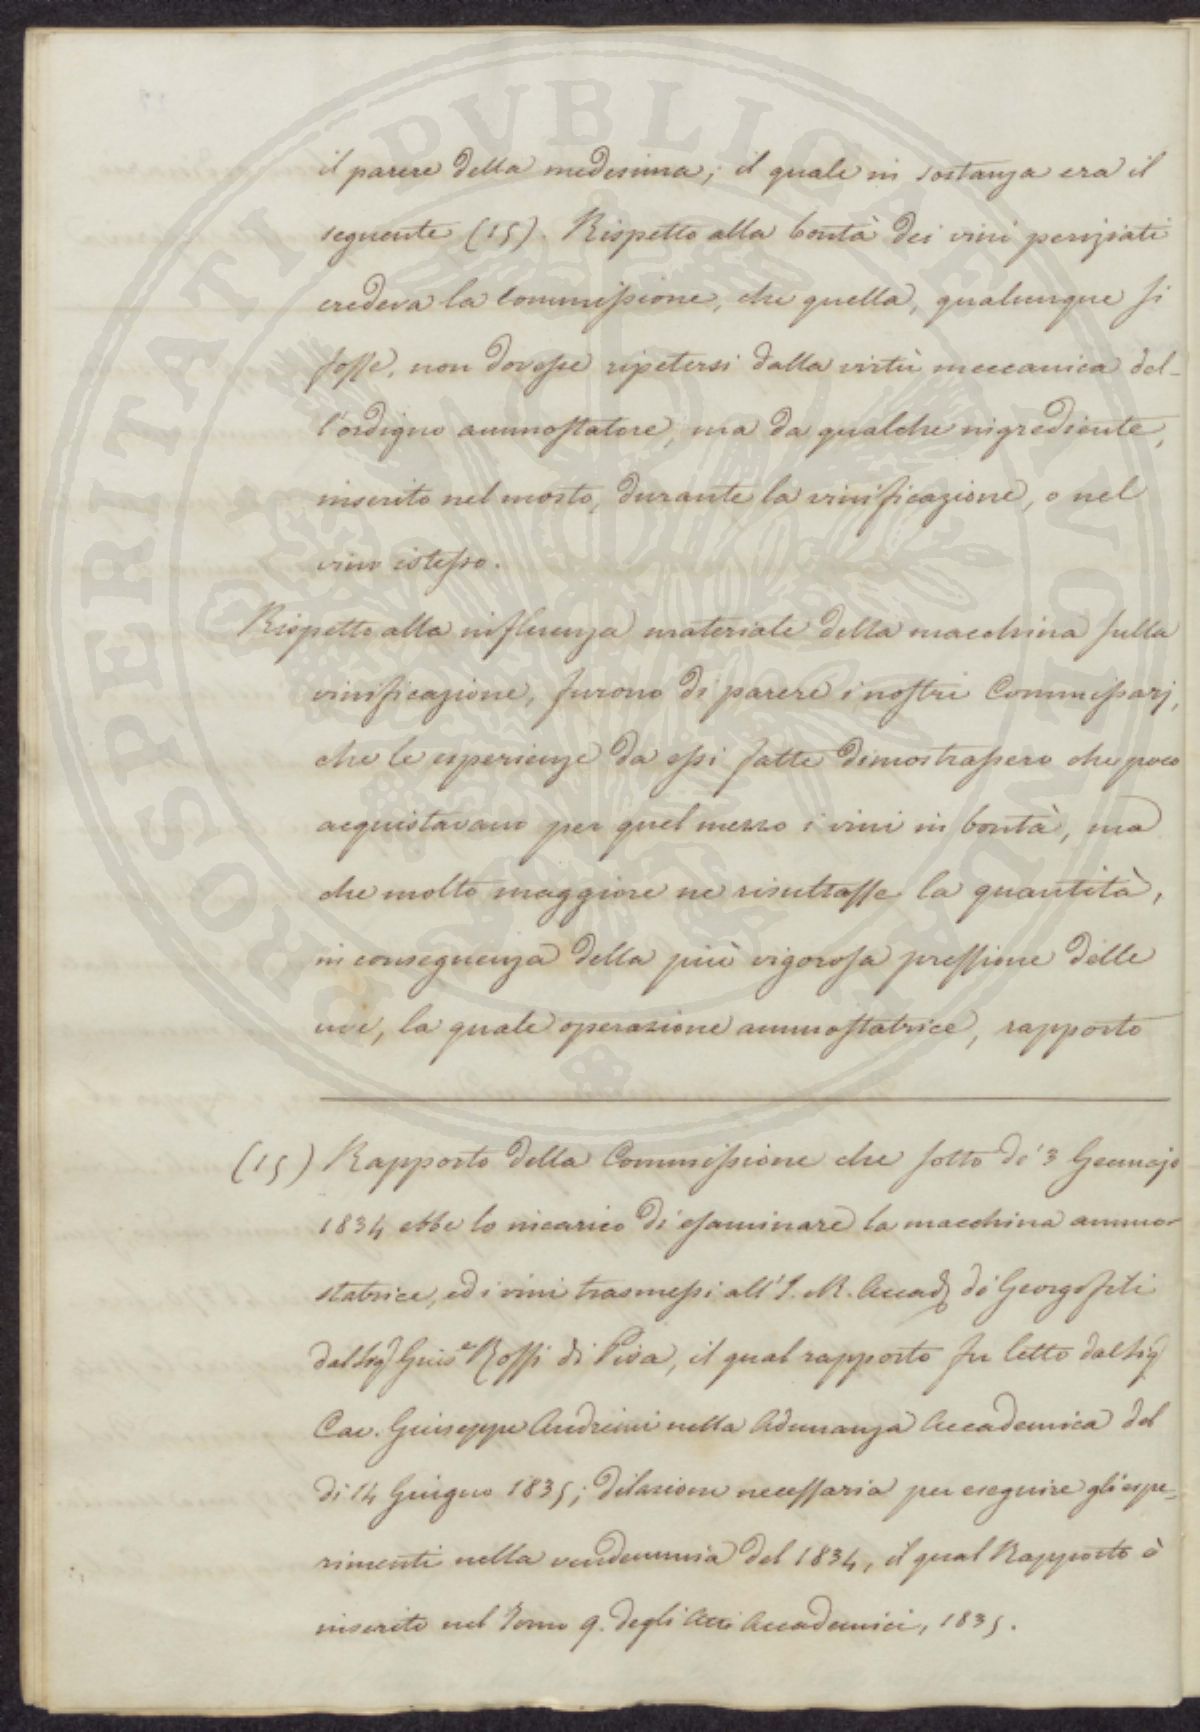 il parere della medesima; il quale in sostanza era il
seguente (15). Rispetto alla bontà dei vini periziati
credeva la Commissione, che quella, qualunque si
fosse, non dovesse ripetersi dalla virtù meccanica del-
l'ordigno ammostatore, ma da qualche ingrediente,
inserito nel mosto, durante la vinificazione, o nel
vino istesso.
Rispetto alla influenza materiale della macchina sulla
vinificazione, furono di parere i nostri Commissarj,
che le esperienze da essi fatte dimostrassero che poco
acquistavano per quel mezzo i vini in bontà, ma
che molto maggiore ne risultasse la quantità,
in conseguenza della più vigorosa pressione delle
uve, la quale operazione ammostatrice, rapporto
(15) Rapporto della Commissione che sotto dì 3 Gennajo
1834 ebbe lo incarico di esaminare la macchina ammo-
statrice, ed i vini trasmessi all'I. e R. Accad. de' Georgofili
dal Sig. Gius.e Rossi di Pisa, il qual rapporto fu letto dal Sig.
Cav. Giuseppe Andreini nella Adunanza Accademica del
dì 14 Giugno 1835; dilazione necessaria per eseguire gli espe-
rimenti nella vendemmia del 1834, il qual Rapporto è
inserito nel Tomo 9. degli Atti Accademici, 1835.
PROSPERITATI PUBLICAE AUGENDAE